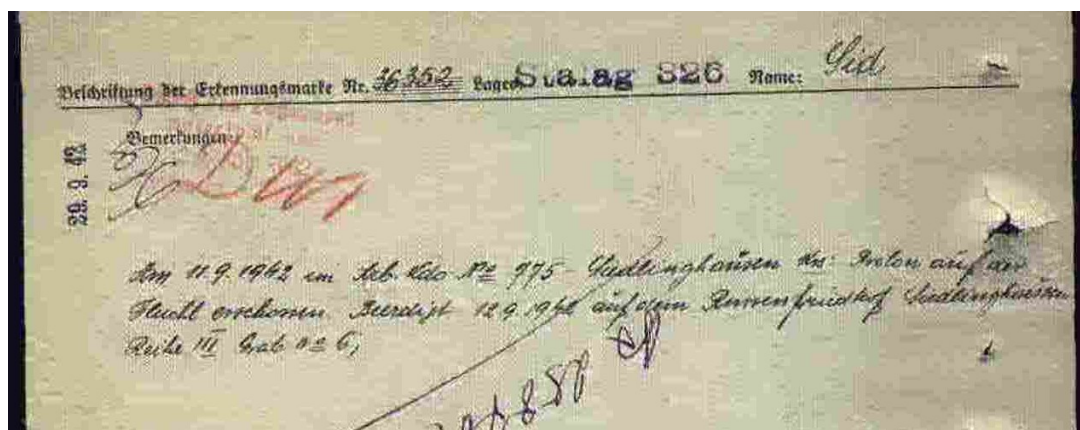 Beschriftung der Erkennungsmarke Nr. 36352 Lager: Stalag 326 Name: Sid
Bemerkungen:
29. 9. 42
Am 11.9.1942 im Arb. Kdo No 775 - Siedlinghausen Krs: Brilon auf der
Flucht erschossen Beerdigt 12.9.1942 auf dem Russenfriedhof Siedlinghausen
Reihe III Grab No 6,